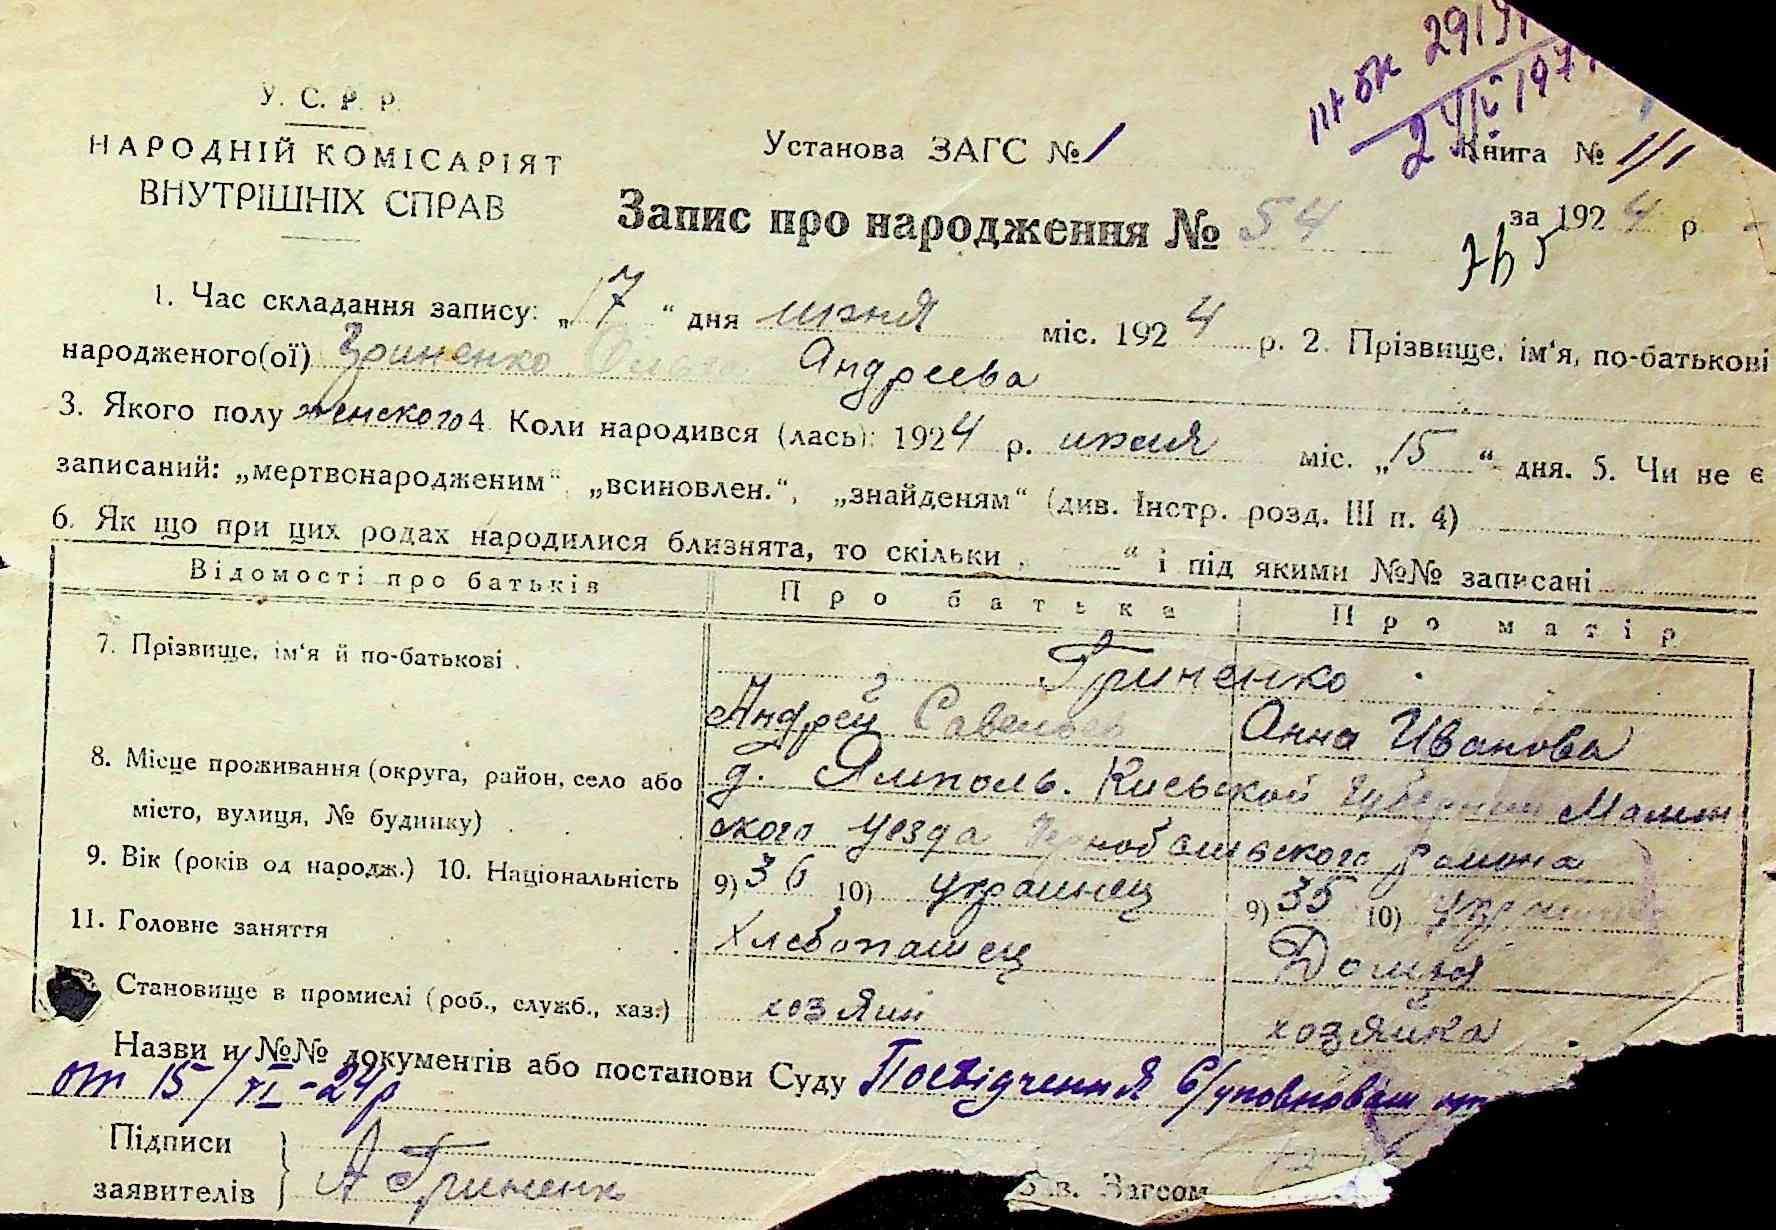 У. С. Р. Р.
НАРОДНІЙ КОМІСАРІЯТ
ВНУТРІШНІХ СПРАВ
Установа ЗАГС № 1
Книга № 1/1
Запис про народження № 54 за 1924 р
1. Час складання запису: „17“ дня июня міс. 1924 р. 2. Прізвище, ім‘я, по-батькові
народженого(ої) Гриненко Андреева
3. Якого полу женского 4. Коли народився (лась): 1924 р. июня міс. „15“ дня. 5. Чи не є
записаний: „мертвонародженим“, „всиновлен.“, „знайденям“ (див. Інстр. розд. III п. 4)
6. Як що при цих родах народилися близнята, то скільки „ “ і під якими №№ записані
Відомості про батьків Про батька Про матір
7. Прізвище, ім‘я й по-батькові Гриненко
Андрей Савельев Анна Иванова
8. Місце проживання (округа, район, село або д. Ямполь. Киевской Губернии
місто, вулиця, № будинку) ского уезда района
9. Вік (років од народж.) 10. Національність 9) 36 10) украинец 9) 35 10)
11. Головне заняття Хлебопашец Домая
Становище в промислі (роб., служб., хаз.) хозяин хозяйка
Назви и №№ документів або постанови Суду Посвідчення С/уповноваж
от 15/VI-24р
Підписи
заявителів А Гриненко
Зав. Загсом